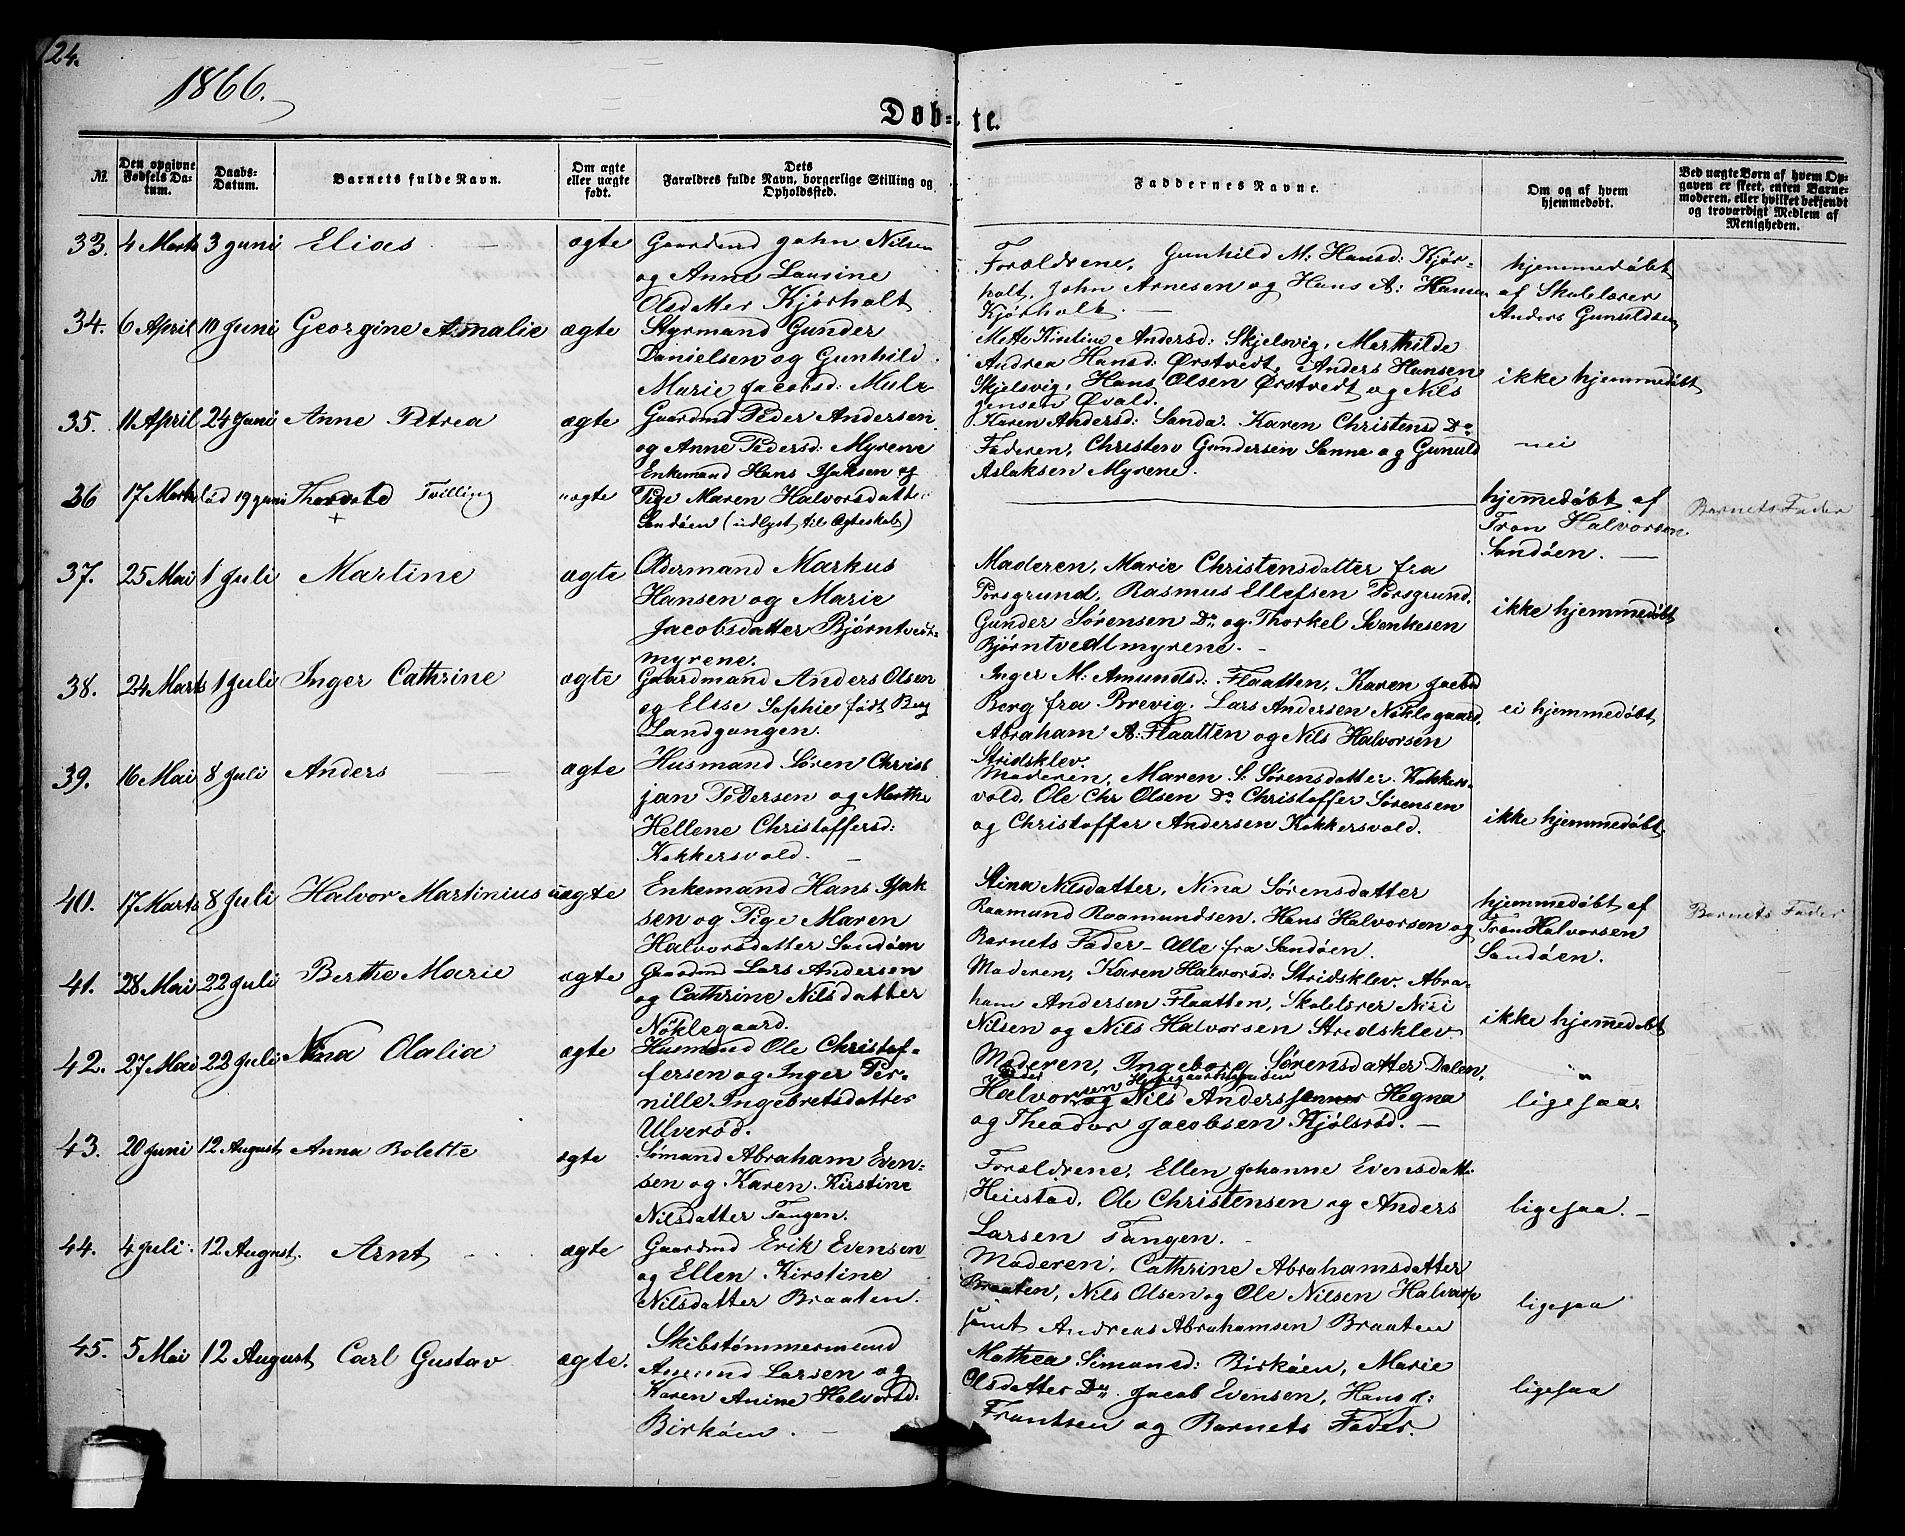 124.
1866.
Døb-te.
№.
Den opgivne Fødsels Datum.
Daabs-Datum.
Barnets fulde Navn.
Om ægte eller uægte født.
Dets Forældres fulde Navn, borgerlige Stilling og Opholdssted.
Faddernes Navne.
Om og af hvem hjemmedøbt.
Ved uægte Børn af hvem Opgaven er skeet, enten Barnemoderen, eller hvilket bekjendt og troværdigt Medlem af Menigheden.
33. 4 Marts 3 Juni Elias ægte
Gaardmd John Nilsen
og Anne Laurine
Olsdatter Kjørholt
Forældrene, Gunhild M: Hansd: Kjør-
holt, John Arnesen og Hans A: Hansen
Kjørholt.
hjemmedøbt
af Skolelærer
Anders Gunuldsen
34. 6 April 10 Juni Georgine Amalie ægte
Styrmand Gunder
Danielsen og Gunhild
Marie Jacobsd: Mule
Mette Kirstine Andersd: Skjelsvig, Marthilde
Andrea Hansd: Ørstvedt, Anders Hansen
Skjelsvig, Hans Olsen Ørstvedt og Nils
Jensen Øvald.
ikke hjemmedøbt
35. 11 April 24 Juni Anne Petrea ægte
Gaardmd Peder Andersen
og Anne Pedersd: Myrene
Karen Andersd: Sanda. Karen Christensd Do
Faderen, Christen Gundersen Sanne og Gunuld
Aslaksen Myrene.
nei
36 17 Marts død 19 Juni Tvilling uægte
Enkemand Hans Isaksen og
Pige Maren Halvorsdatt:
Sandøen (udlyst til Ægteskab)
hjemmedøbt af
Tron Halvorsen
Sandøen.
Barnets Fader
37. 25 Mai 1 Juli Martine ægte
Oldermand Markus
Hansen og Marie
Jacobsdatter Bjørntvedt-
myrene.
Moderen, Marie Christensdatter fra
Porsgrund, Rasmus Ellefsen Porsgrund,
Gunder Sørensen Do og Thorkel Svenkesen
Bjørntvedtmyrene.
ikke hjemmedøbt
38. 24 Marts 1 Juli Inger Cathrine ægte
Gaardmand Anders Olsen
og Elise Sophie født Berg
Landgangen.
Inger M: Amundsd: Flaatten, Karen Jacobd
Berg fra Brevig. Lars Andersen Nøklegaard,
Abraham A: Flaatten og Nils Halvorsen
Stridsklev.
ei hjemmedøbt
39. 16 Mai 8 Juli Anders ægte
Husmand Søren Christ
jan Pedersen og Marthe
Hellene Christoffersd:
Kokkersvold.
Moderen, Maren S. Sørensdatter Kokkers-
vold. Ole Chr Olsen Do Christoffer Sørensen
og Christoffer Andersen Kokkersvold.
ikke hjemmedøbt
40. 17 Marts 8 Juli Halvor Martinius uægte
Enkemand Hans Isak
sen og Pige Maren
Halvorsdatter Sandøen
Stina Nilsdatter, Nina Sørensdatter
Raamund Raamundsen, Hans Halvorsen og
Barnets Fader – Alle fra Sandøen.
hjemmedøbt af
Tron Halvorsen
Sandøen.
Barnets Fader
41. 28 Mai 22 Juli Berthe Marie ægte
Gaardmd Lars Andersen
og Cathrine Nilsdatter
Nøklegaard.
Moderen, Karen Halvorsd: Stridsklev. Abra-
ham Andersen Flaatten, Skolelærer Nils
Nilsen og Nils Halvorsen Stridsklev
ikke hjemmedøbt
42. 27 Mai 22 Juli Nina Olalia ægte
Husmand Ole Christof-
fersen og Inger Per-
nille Ingebretsdatter
Ulverød.
Moderen, Ingeborg Sørensdatter Dalen,
Halvorsen og Nils Anders Hegna
og Theador Jacobsen Kjølsrød.
ligesaa
43. 20 Juni 12 August Anna Bolette ægte
Sømand Abraham Even-
sen og Karen Kirstine
Nilsdatter Tangen.
Forældrene, Ellen Johanne Evensdatt:
Heiestad, Ole Christensen og Anders
Larsen Tangen.
ligesaa.
44. 4 Juli 12 August. Arnt ægte
Gaardmd Erik Evensen
og Ellen Kirstine
Nilsdatter Braaten.
Moderen, Cathrine Abrahamsdatter
Braaten, Nils Olsen og Ole Nilsen
samt Andreas Abrahamsen Braaten
ligesaa
45. 5 Mai 12 August Carl Gustav ægte.
Skibstømmermand
Amund Larsen og
Karen Anine Halvorsd:
Birkøen.
Mathea Simonsd: Birkøen, Marie
Olsdatter Do. Jacob Evensen, Hans J:
Frantsen og Barnets Fader.
ligesaa